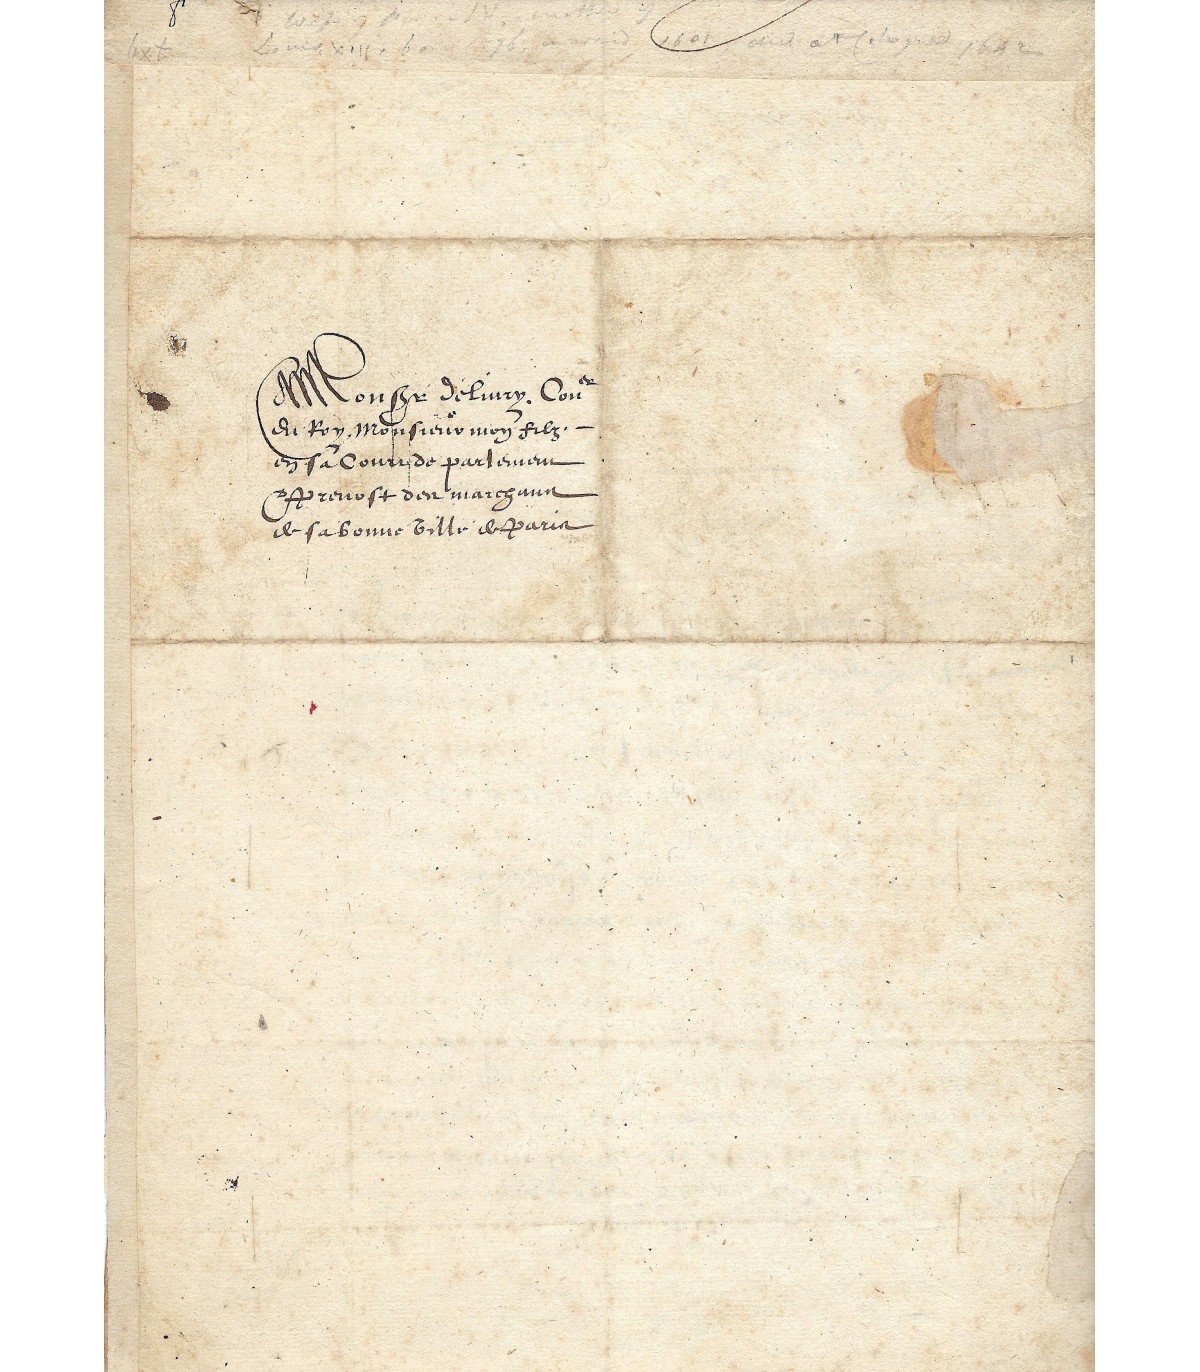 wife of Henri IV, mother of
Louis XIII, born married 1601 died at Cologne 1642
Monsr de Livry. Con.er
du Roy, Monsieur mon filz.
en sa Court de parlement
Prevost des marchans
de sa bonne ville de Paris